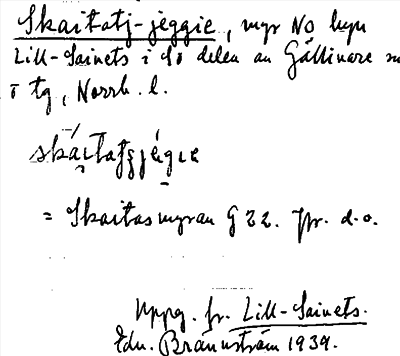 Skaitatj-jeggie, myr NO byn
Lill-Sainets i SO delen av Gällivare
tg, Norrb. l.
skaitatjjégie
= Skaitasmyran G 22. Jfr. d.o.
Uppg. fr. Lill-Sainets.
Edv. Brännström 1939.